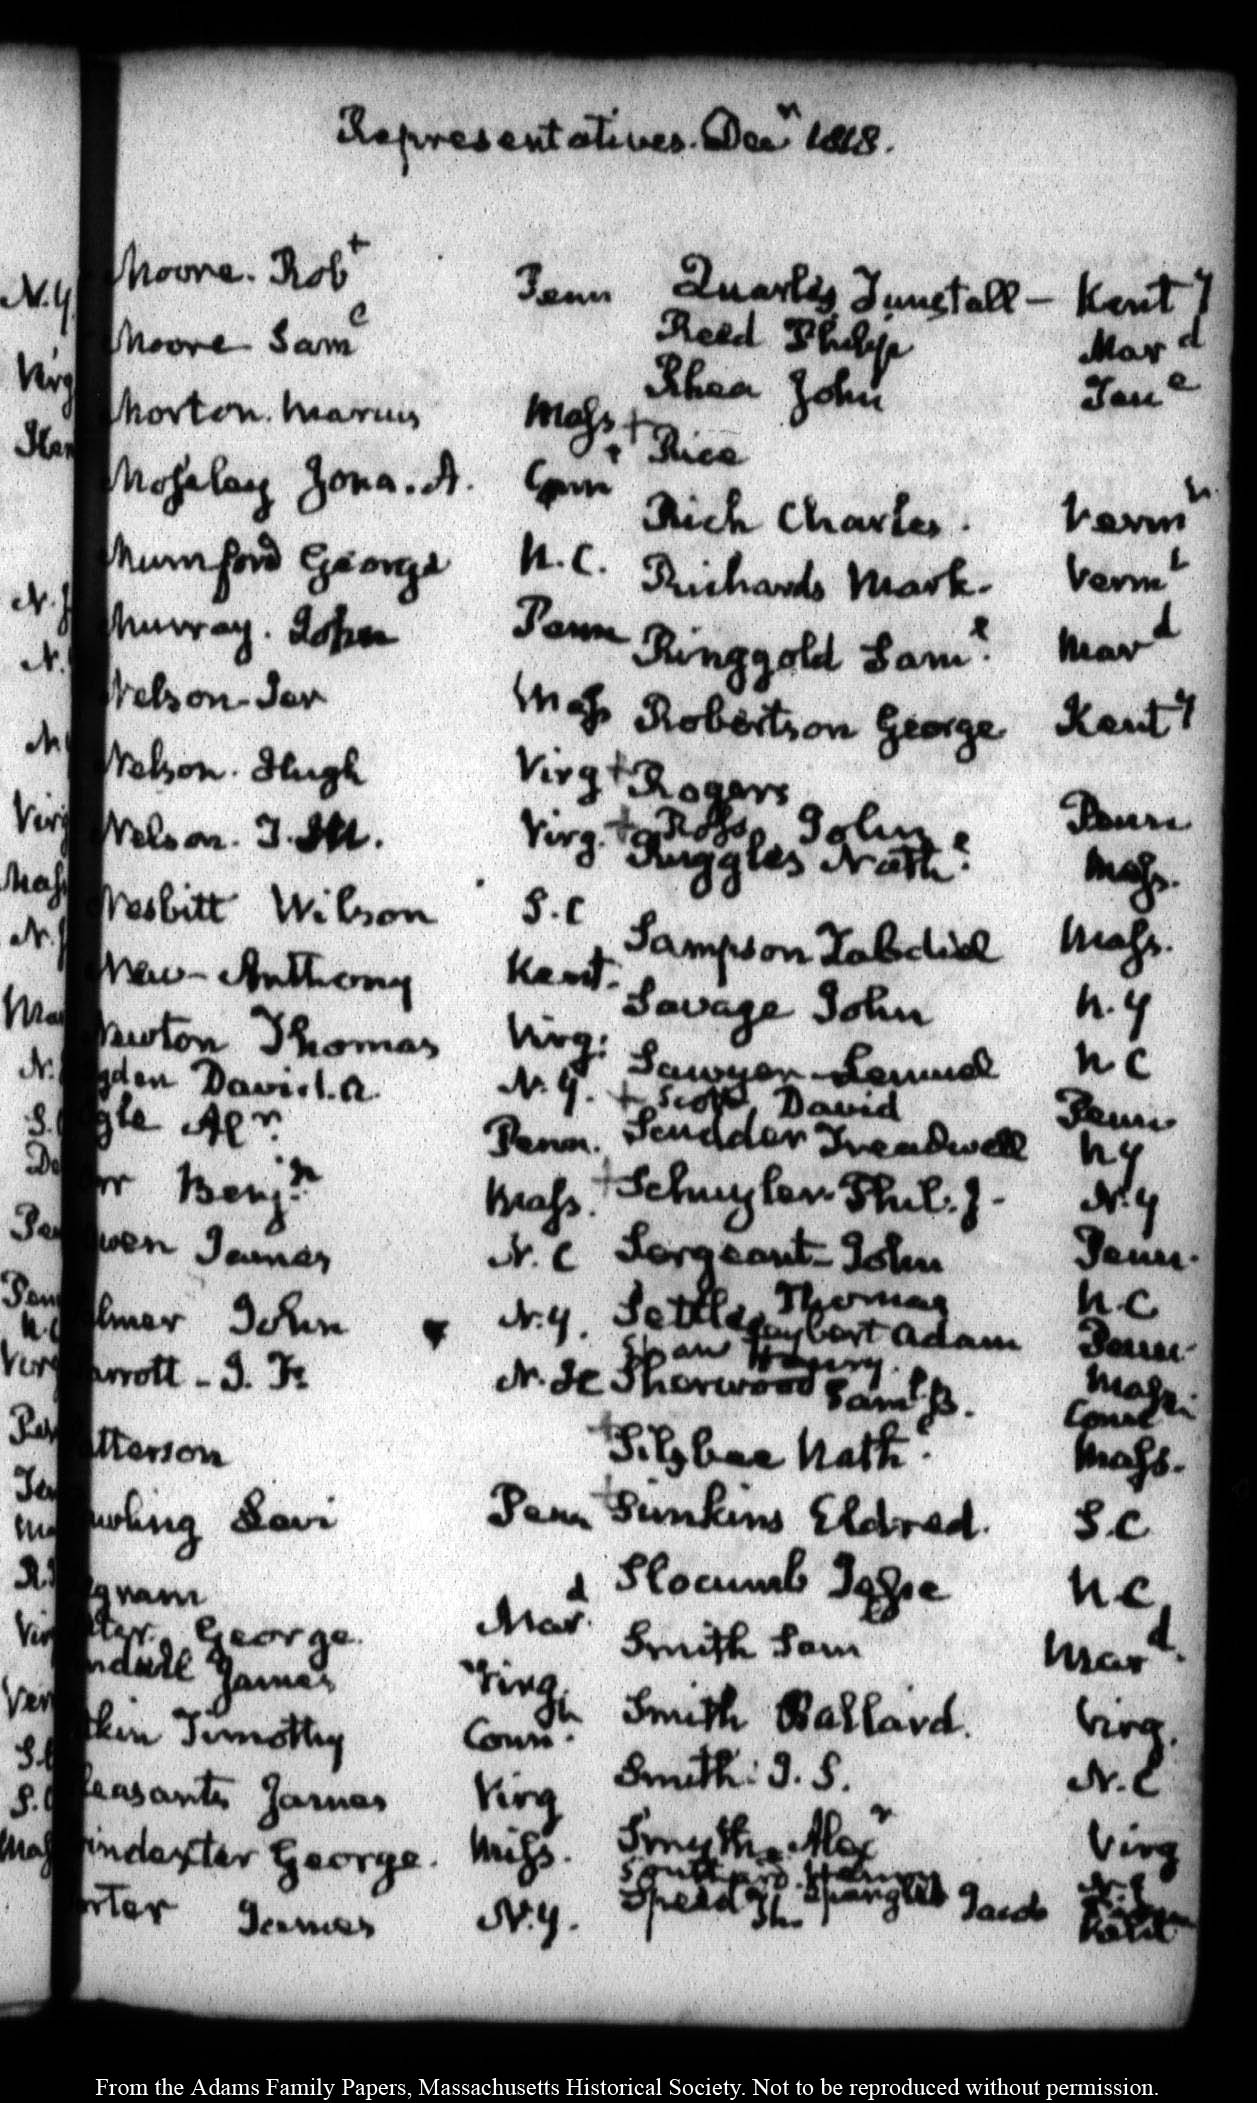 Representatives. Decr 1818.
Moore. Robt Penn
Moore Saml
Morton. Marcus Mass
Mosseley Jona. A. Conn
Mumford George N.C.
Murray. John Penn
Nelson - Jer Mass
Nelson. Hugh Virg
Nelson. T. M. Virg.
Nesbitt Wilson S.C
New - Anthony Kent.
Newton Thomas Virg:
gden David. A. N.Y.
gle Alr. Penn.
rr Benjn Mass.
wen James N.C
lmer John N.Y.
arrott - J. F. N. H
atterson
wling Levi Penn
gram
ter. George. Mard
ndall James Virg.
kin Timothy Connt.
leasants James Virg
indexter George. Miss.
rter James N.Y.
Quarles Tunstall - Kenty
Reed Philip Mard
Rhea John Tene
+ Rice
Rich Charles. Vermt.
Richards Mark. Vermt
Ringgold Saml. Mard
Robertson George Kenty
+ Rogers
+ Ross, John Penn
Ruggles Nathl. Mass.
Sampson Zabdiel Mass.
Savage John N.Y
Sawyer - Lemuel N C
+ Scott, David Penn
Scudder Treadwell N Y
+ Schuyler. Phil. J - N.Y
Sergeant - John Penn.
Settle, Thomas N.C
Seybert Adam Penn.
Shaw Henry. Mass.
Sherwood Saml. B. Connt
+ Silsbee Nathl. Mass.
+ Simkins Eldred. S.C
Slocumb Jesse N.C.
Smith Sam Mard.
Smith Ballard. Virg.
Smith. J. S. N.C
Smyth. Alexr Virg
Southard. Henry N.J
Speed Th. Spangler Jacob Kent
N.Y.
Virg
N.J
N.
Virg
Mass
N.J
N.
S.C
De
Pen
Pen
N.C
Virg
Pen
Ten
Ma
R.I
Vir
Ver
S.C
S.C
Mass
From the Adams Family Papers, Massachusetts Historical Society. Not to be reproduced without permission.